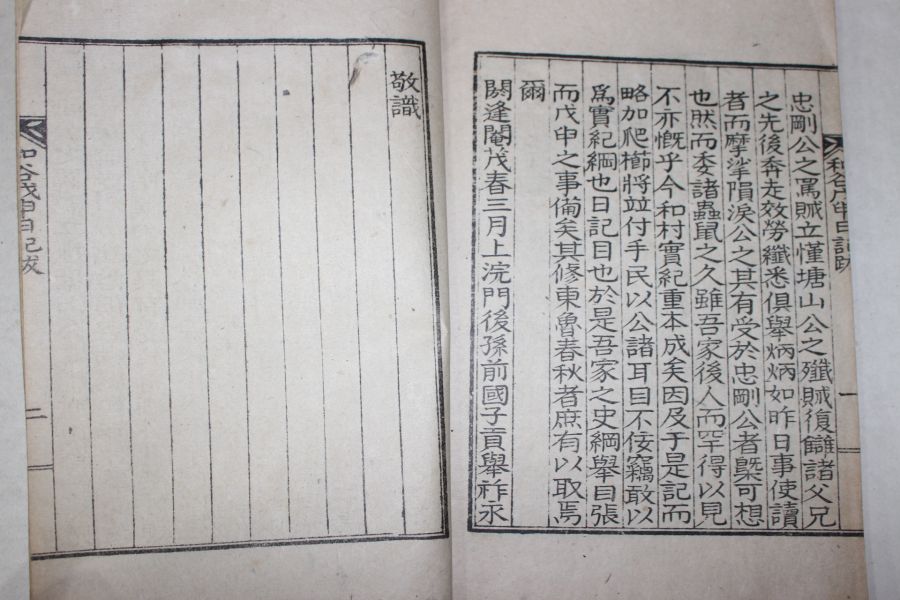 忠剛公之罵賊立慬塘山公之殲賊復讎諸父兄
之先後奔走效勞纖悉俱舉炳炳如昨日事使讀
者而摩挲隕淚公之其有受於忠剛公者槩可想
也然而委諸蟲鼠之久雖吾家後人而罕得以見
不亦慨乎今和村實紀重本成矣因及于是記而
略加爬櫛將竝付手民以公諸耳目不佞竊敢以
爲實紀綱也日記目也於是吾家之史綱舉目張
而戊申之事備矣其修東魯春秋者庶有以取焉
爾
閼逢閹茂春三月上浣門後孫前國子貢舉祚永
敬識
和谷戊申日記跋
一
和谷戊申日記跋
二